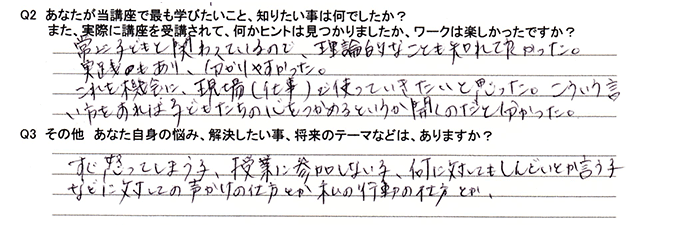 Q2 あなたが当講座で最も学びたいこと、知りたい事は何でしたか？
また、実際に講座を受講されて、何かヒントは見つかりましたか、ワークは楽しかったですか？
常に子どもと関わっているので、理論的なことも知れて良かった。
実践もあり、分かりやすかった。
これを機会に、現場(仕事)で使っていきたいと思った。こういう言
い方をすれば子どもたちの心をつかめるというか開くのだと分かった。
Q3 その他 あなた自身の悩み、解決したい事、将来のテーマなどは、ありますか？
すぐ怒ってしまう子、授業に参加しない子、何に対してもしんどいとか言う子
などに対しての声かけの仕方とか私の行動の仕方とか、